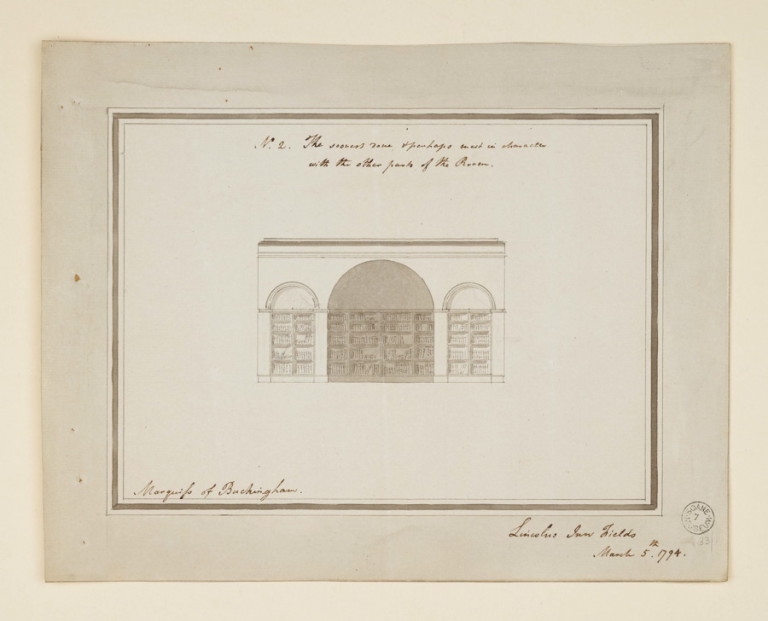 No. 2. The second one, & perhaps most in character
with the other parts of the Room.
Marquiſs of Buckingham.
Lincolns Inn Fields
March 5th. 1794.
SOANE MUSEUM
7